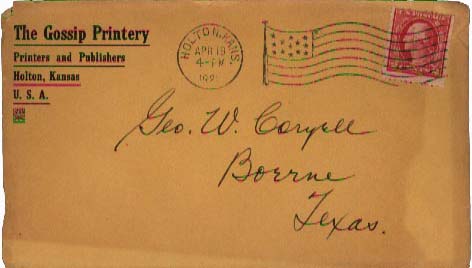 The Gossip Printery
Printers and Publishers
Holton, Kansas
U. S. A.
HOLTON, KANS.
APR 19
4-PM
Geo. W. Coryell
Boerne
Texas.